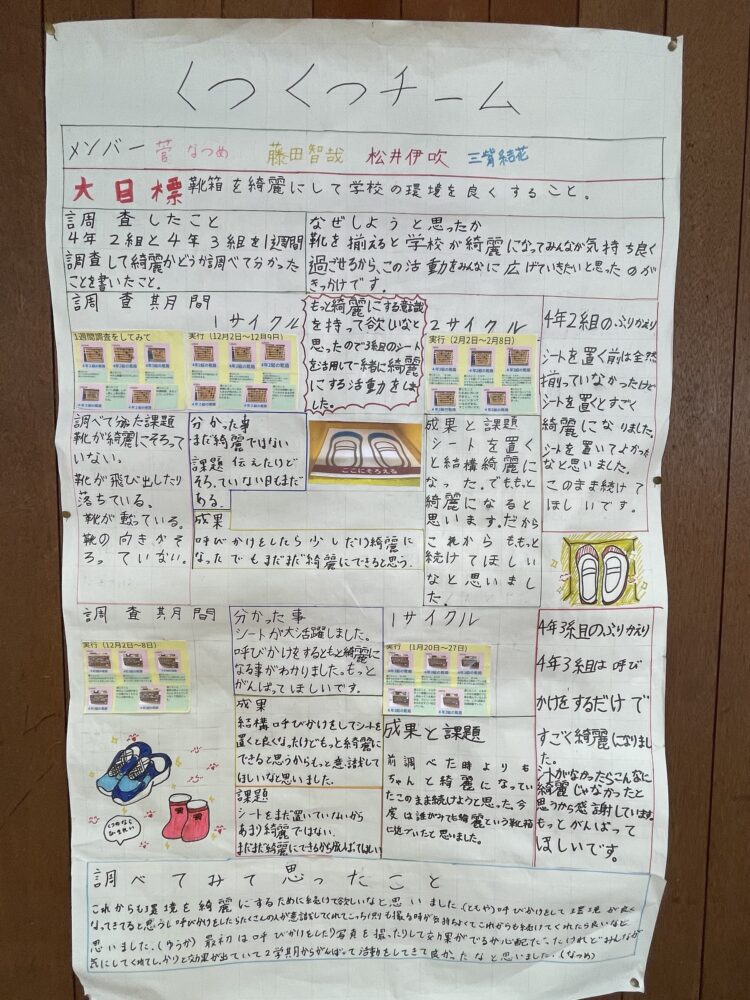 くつくつチーム
メンバー 菅なつめ 藤田智哉 松井伊吹 三
大目標 靴箱を綺麗にして学校の環境を良くすること。
調査したこと
4年2組と4年3組を1週間
調査して綺麗かどうか調べて分かった
ことを書いたこと。
なぜしようと思ったか
靴を揃えると学校が綺麗になってみんなが気持ち良く
過ごせるから、この活動をみんなに広げていきたいと思ったのが
きっかけです。
調査期間
1サイクル
1週間調査をしてみて
実行(12月2日~12月9日)
もっと綺麗にする意識
を持って欲しいなと
思ったので3組のシート
を活用して一緒に綺麗
にする活動をしま
した。
2サイクル
実行(2月2日~2月8日)
4年2組のふりかえり
シートを置く前は全然
揃っていなかったけど
シートを置くとすごく
綺麗になりました。
シートを置いてよかった
なと思いました。
このまま続けて
ほしいです。
調べて分かった課題
靴が綺麗にそろって
いない。
靴が飛び出したり
落ちている。
靴が載っている。
靴の向きがそ
ろっていない。
分かった事
まだ綺麗ではない
課題 伝えたけど
そろっていない日もまだ
ある。
成果
呼びかけをしたら少しだけ綺麗に
なったでもまだまだ綺麗にできると思う.
ここにそろえる
成果と課題
シートを置く
と結構綺麗に
なった。でももっと
綺麗になると
思います。だから
これからももっと
続けてほしい
なと思いまし
た.
調査期間
実行(12月2日~8日)
分かった事
シートが大活躍しました。
呼びかけをするともっと綺麗に
なる事がわかりました。もっと
がんばってほしいです.
成果
結構呼びかけをしてシートを
置くと良くなったけどもっと綺麗に
できると思うからもっと意識して
ほしいなと思いました.
課題
シートをまだ置いていないから
あまり綺麗ではない.
まだまだ綺麗にできるから頑張ってほしい
1サイクル
実行(1月20日~27日)
成果と課題
前調べた時よりも
ちゃんと綺麗になってい
たこのまま続けようと思った.今
度は誰がみても綺麗という靴箱
に近づいたと思いました.
4年3組のふりかえり
4年3組は呼び
かけをするだけで
すごく綺麗になりまし
た。
シートがなかったらこんなに
綺麗じゃなかったと
思うから感謝しています。
もっとがんばって
ほしいです。
調べてみて思ったこと
これからも環境を綺麗にするために続けて欲しいなと思いました.(ともや)呼びかけをして環境が良く
なってきてると思うし呼びかけをしたらたくさんの人が意識してくれてこっちも撮る時が気持ちよくてこれからも続けてくれたら良いなと
思いました.(ゆうか) 最初は呼びかけをしたり写真を撮ったりして効果がでるか心配だったけれどみんなが
気にしてくれてしっかりと効果が出ていて2学期からがんばって活動をしてきて良かったなと思いました.(なつめ)